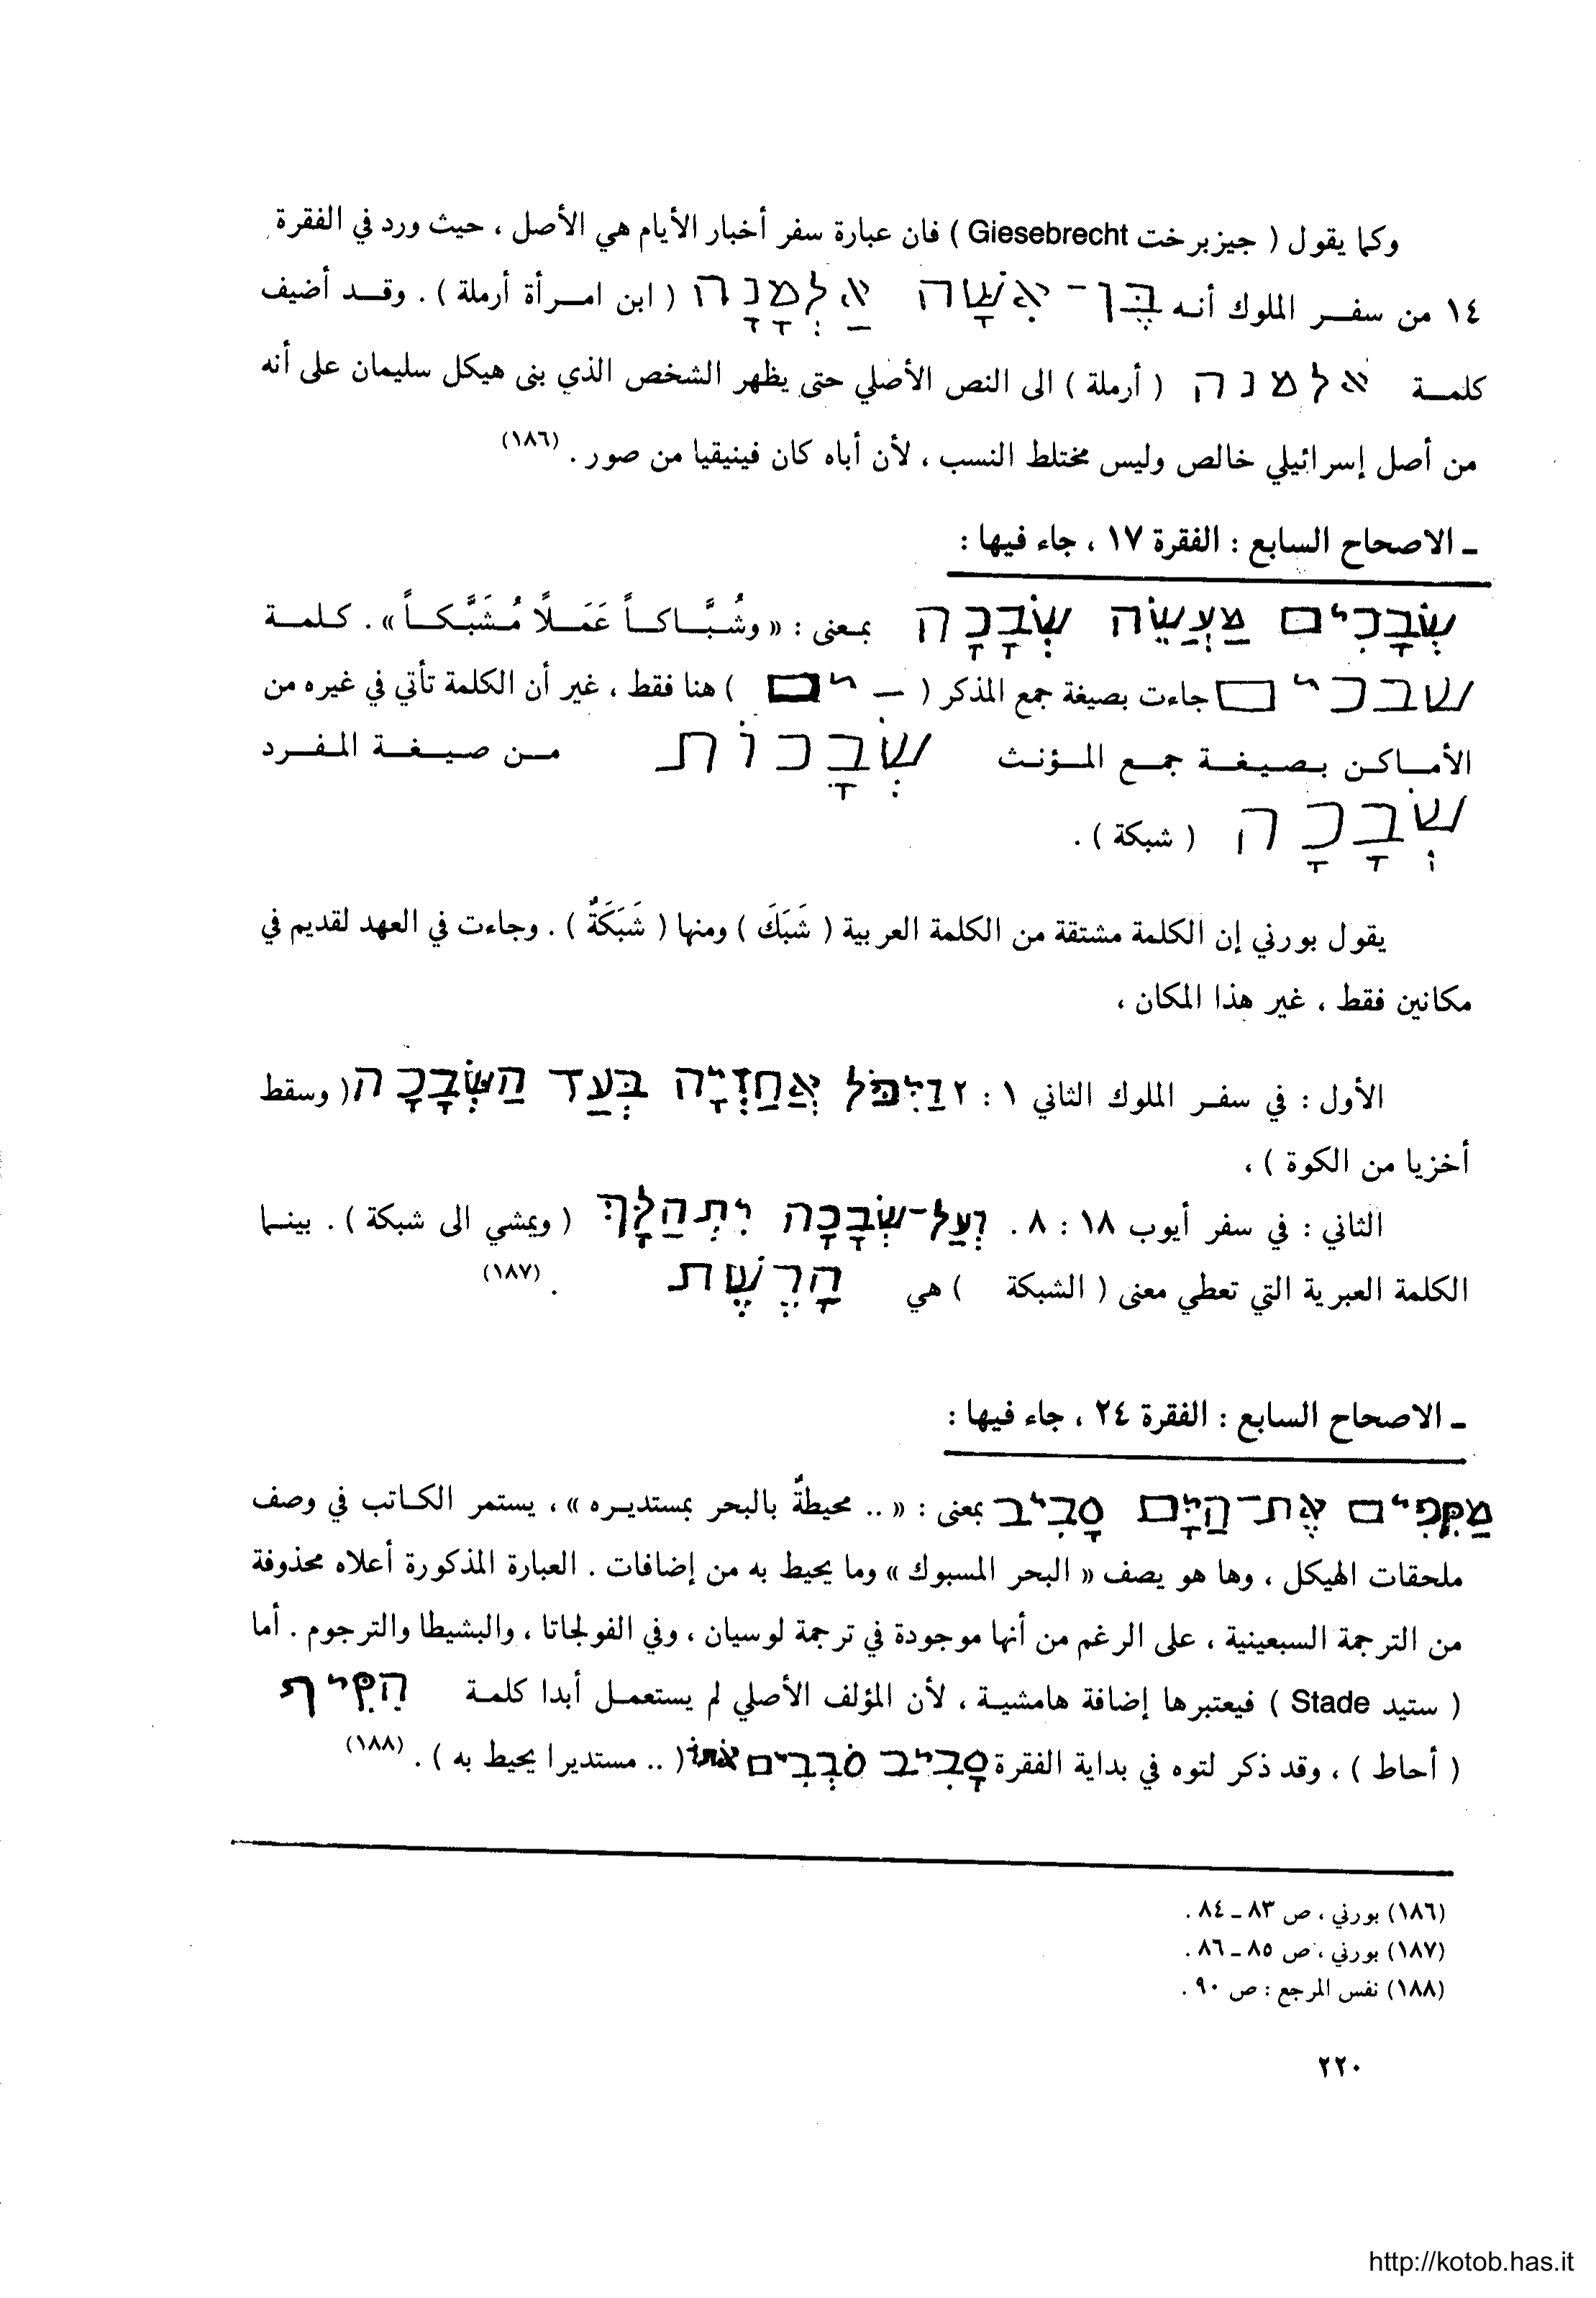 وكما يقول ( جيزبرخت Giesebrecht ) فان عبارة سفر أخبار الأيام هي الأصل ، حيث ورد في الفقرة
١٤ من سفـر الملوك أنـه בֶּן־אִשָּׁה אַלְמָנָה ( ابن امـرأة أرملة ) . وقـد أضيف
كلمـة אלמנה ( أرملة ) الى النص الأصلي حتى يظهر الشخص الذي بنى هيكل سليمان على أنه
من أصل إسرائيلي خالص وليس مختلط النسب ، لأن أباه كان فينيقيا من صور . (١٨٦)
ـ الاصحاح السابع : الفقرة ١٧ ، جاء فيها :
שְׂבָכִים מַעֲשֵׂה שְׂבָכָה بمعنى : « وشُبَّـاكـاً عَمَـلاً مُـشَبَّكـاً » . كلمـة
שבכים جاءت بصيغة جمع المذكر ( – ים ) هنا فقط ، غير أن الكلمة تأتي في غيره من
الأمـاكـن بـصيـغـة جمـع المـؤنـث שְׂבָכוֹת مـن صيـغـة المـفـرد
שְׂבָכָה ( شبكة ) .
يقول بورني إن الكلمة مشتقة من الكلمة العربية ( شَبَكَ ) ومنها ( شَبَكَةٌ ) . وجاءت في العهد لقديم في
مكانين فقط ، غير هذا المكان ،
الأول : في سفـر الملوك الثاني ١ : ٢ וַיִּפֹּל אֲחַזְיָה בְּעַד הַשְּׂבָכָה ( وسقط
أخزيا من الكوة ) ،
الثاني : في سفر أيوب ١٨ : ٨ . וְעַל־שְׂבָכָה יִתְהַלָּךְ ( ويمشي الى شبكة ) . بينـما
الكلمة العبرية التي تعطي معنى ( الشبكة ) هي הָרֶשֶׁת . (١٨٧)
ـ الاصحاح السابع : الفقرة ٢٤ ، جاء فيها :
מַקִּפִים אֶת־הַיָּם סָבִיב بمعنى : « .. محيطةٌ بالبحر بمستديـره » ، يستمر الكـاتب في وصف
ملحقات الهيكل ، وها هو يصف « البحر المسبوك » وما يحيط به من إضافات . العبارة المذكورة أعلاه محذوفة
من الترجمة السبعينية ، على الرغم من أنها موجودة في ترجمة لوسيان ، وفي الفولجاتا ، والبشيطا والترجوم . أما
( ستيد Stade ) فيعتبرها إضافة هامشيـة ، لأن المؤلف الأصلي لم يستعمـل أبدا كلمـة הִקִּיף
( أحاط ) ، وقد ذكر لتوه في بداية الفقرة סָבִיב סֹבְבִים אֹתוֹ ( .. مستديرا يحيط به ) . (١٨٨)
(١٨٦) بورني ، ص ٨٣ ـ ٨٤ .
(١٨٧) بورني ، ص ٨٥ ـ ٨٦ .
(١٨٨) نفس المرجع : ص ٩٠ .
٢٢٠
http://kotob.has.it